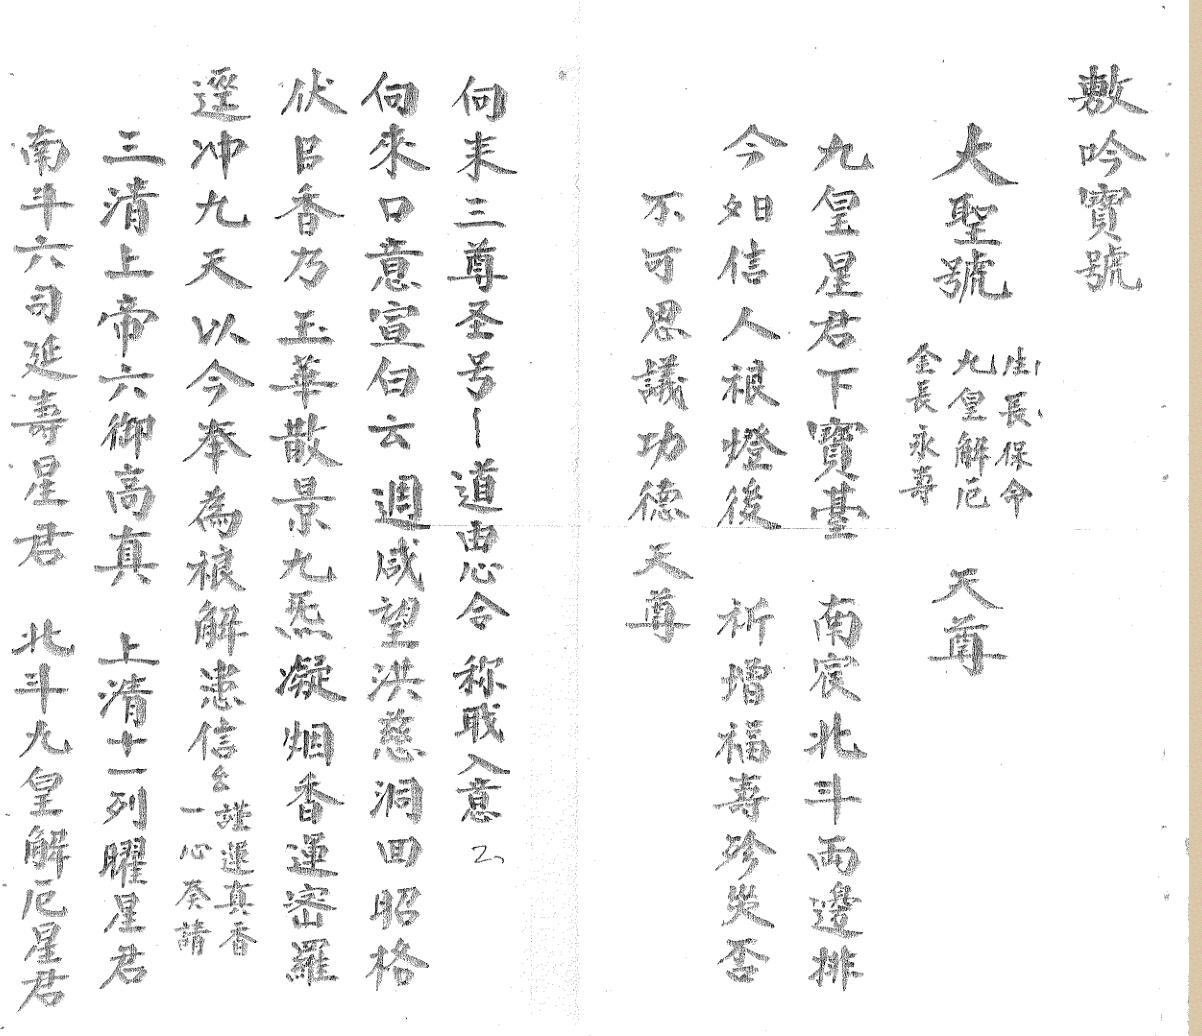 敷吟寶號
大聖號 生長保命 九皇解厄 金長永壽 天尊
九皇星君下寶臺 南宸北斗兩邊排
今夕日信人禳燈後 祈增福壽殄災否
不可思議功德天尊
向来三尊圣号 道由心合 称职入意
向來口意宣白云 週咸望洪慈洞回昭格
伏曰香乃 玉華散景九炁凝烟香運密羅
逕冲九天以今奉為禳解患信 謹運真香 一心奏請
三清上帝六御高真 上清十一列曜星君
南斗六司延壽星君 北斗九皇解厄星君